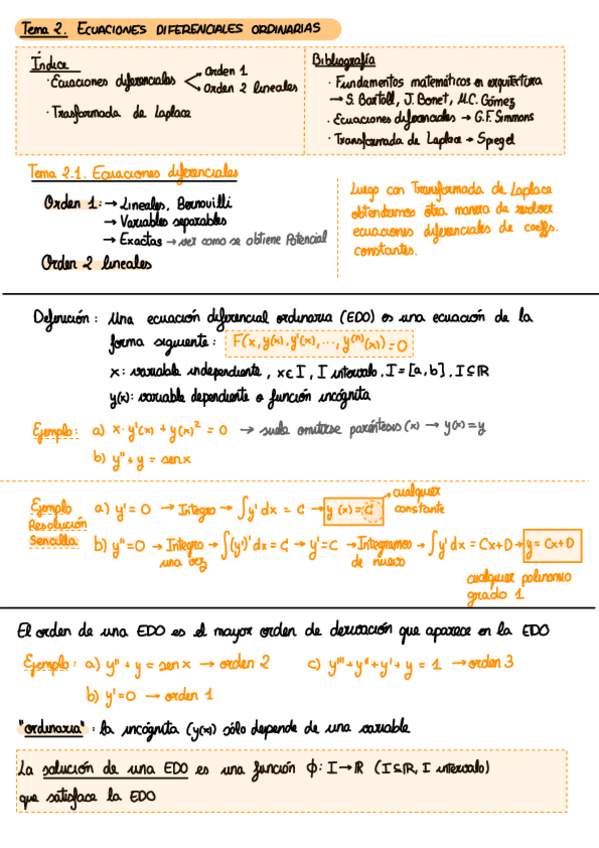 Tema 2. ECUACIONES DIFERENCIALES ORDINARIAS
Índice
· Ecuaciones diferenciales
Orden 1
Orden 2 lineales
· Trasformada de Laplace
Bibliografía
· Fundamentos matemáticos en arquitectura
→ S. Bartoll, J. Bonet, M.C. Gómez
· Ecuaciones diferenciales → G.F. Simmons
· Transformada de Laplace → Spiegel
Tema 2.1. Ecuaciones diferenciales
Orden 1: → Lineales, Bernouilli
→ Variables separables
→ Exactas → ver como se obtiene Potencial
Orden 2 lineales
Luego con Transformada de Laplace
obtendremos otra manera de resolver
ecuaciones diferenciales de coeffs.
constantes.
Definición: Una ecuación diferencial ordinaria (EDO) es una ecuación de la
forma siguiente: F(x, y(x), y'(x), ..., y⁽ⁿ⁾(x)) = 0
x: variable independiente, x∈I, I intervalo, I=[a,b], I⊆ℝ
y(x): variable dependiente o función incógnita
Ejemplo: a) x·y'(x) + y(x)² = 0 → suele omitirse paréntesis (x) → y(x)=y
b) y''+y = senx
Ejemplo
Resolución
Sencilla
a) y' = 0 → Integro → ∫y' dx = C → y(x) = C
cualquier
constante
b) y''=0 → Integro → ∫(y')' dx = C → y'=C → Integramos → ∫y' dx = Cx+D → y = Cx+D
una vez
de nuevo
cualquier polinomio
grado 1
El orden de una EDO es el mayor orden de derivación que aparece en la EDO
Ejemplo: a) y'' + y = senx → orden 2 c) y''' + y'' + y' + y = 1 → orden 3
b) y'=0 → orden 1
"ordinaria": la incógnita (y(x)) sólo depende de una variable
La solución de una EDO es una función ϕ: I→ℝ (I⊆ℝ, I intervalo)
que satisface la EDO